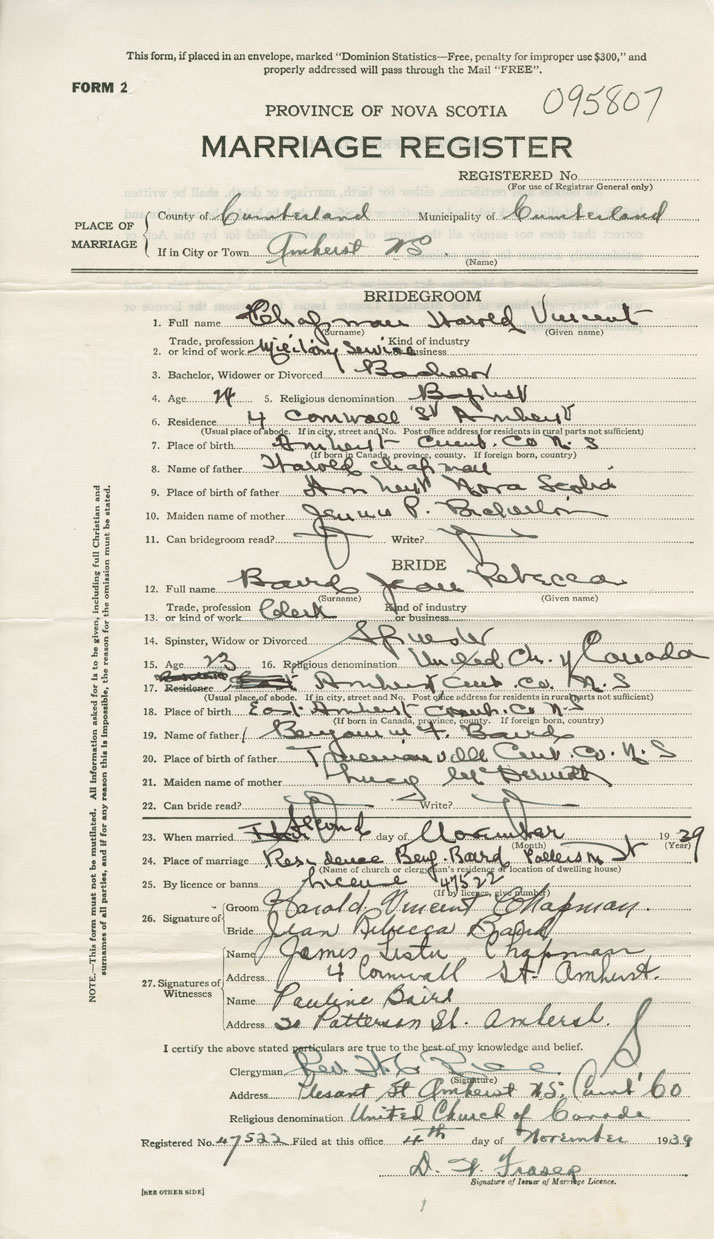 This form, if placed in an envelope, marked "Dominion Statistics—Free, penalty for improper use $300," and
properly addressed will pass through the Mail "FREE".
FORM 2
095807
PROVINCE OF NOVA SCOTIA
MARRIAGE REGISTER
REGISTERED No.
(For use of Registrar General only)
PLACE OF MARRIAGE
County of Cumberland Municipality of Cumberland
If in City or Town Amherst NS.
(Name)
BRIDEGROOM
1. Full name Chapman Harold Vincent
(Surname) (Given name)
Trade, profession Kind of industry
2. or kind of work Military Service or business
3. Bachelor, Widower or Divorced Bachelor
4. Age 24 5. Religious denomination Baptist
6. Residence 4 Cornwall St Amherst
(Usual place of abode. If in city, street and No. Post office address for residents in rural parts not sufficient)
7. Place of birth Amherst Cum. Co N.S
(If born in Canada, province, county. If foreign born, country)
8. Name of father Harold Chapman
9. Place of birth of father Amherst Nova Scotia
10. Maiden name of mother Jennie P.
11. Can bridegroom read? Write?
BRIDE
12. Full name Baird Jean Rebecca
(Surname) (Given name)
Trade, profession Kind of industry
13. or kind of work Clerk or business
14. Spinster, Widow or Divorced Spinster
15. Age 23 16. Religious denomination United Ch. of Canada
17. Residence Amherst Cum. Co. N.S
(Usual place of abode. If in city, street and No. Post office address for residents in rural parts not sufficient)
18. Place of birth East Amherst Cumb. Co N-S
(If born in Canada, province, county. If foreign born, country)
19. Name of father Benjamin F. Baird
20. Place of birth of father Truemanville Cum. Co. N.S
21. Maiden name of mother
22. Can bride read? Write?
23. When married Second day of November 1939
(Month) (Year)
24. Place of marriage Residence Benj. Baird Patterson St
(Name of church or clergyman's residence or location of dwelling house)
25. By licence or banns License 47522
(If by licence, give number)
26. Signature of
Groom Harold Vincent Chapman
Bride Jean Rebecca Baird
27. Signatures of Witnesses
Name James Lister Chapman
Address 4 Cornwall St. Amherst.
Name Pauline Baird
Address 20 Patterson St. Amherst.
I certify the above stated particulars are true to the best of my knowledge and belief.
Clergyman Rev.
(Signature)
Address Plesant St Amherst N.S. Cum' Co
Religious denomination United Church of Canada
Registered No. 47522 Filed at this office 4th day of November 1939
D. W. Fraser
Signature of Issuer of Marriage Licence.
[SEE OTHER SIDE]
NOTE.—This form must not be mutilated. All information asked for is to be given, including full Christian and
surnames of all parties, and if for any reason this is impossible, the reason for the omission must be stated.